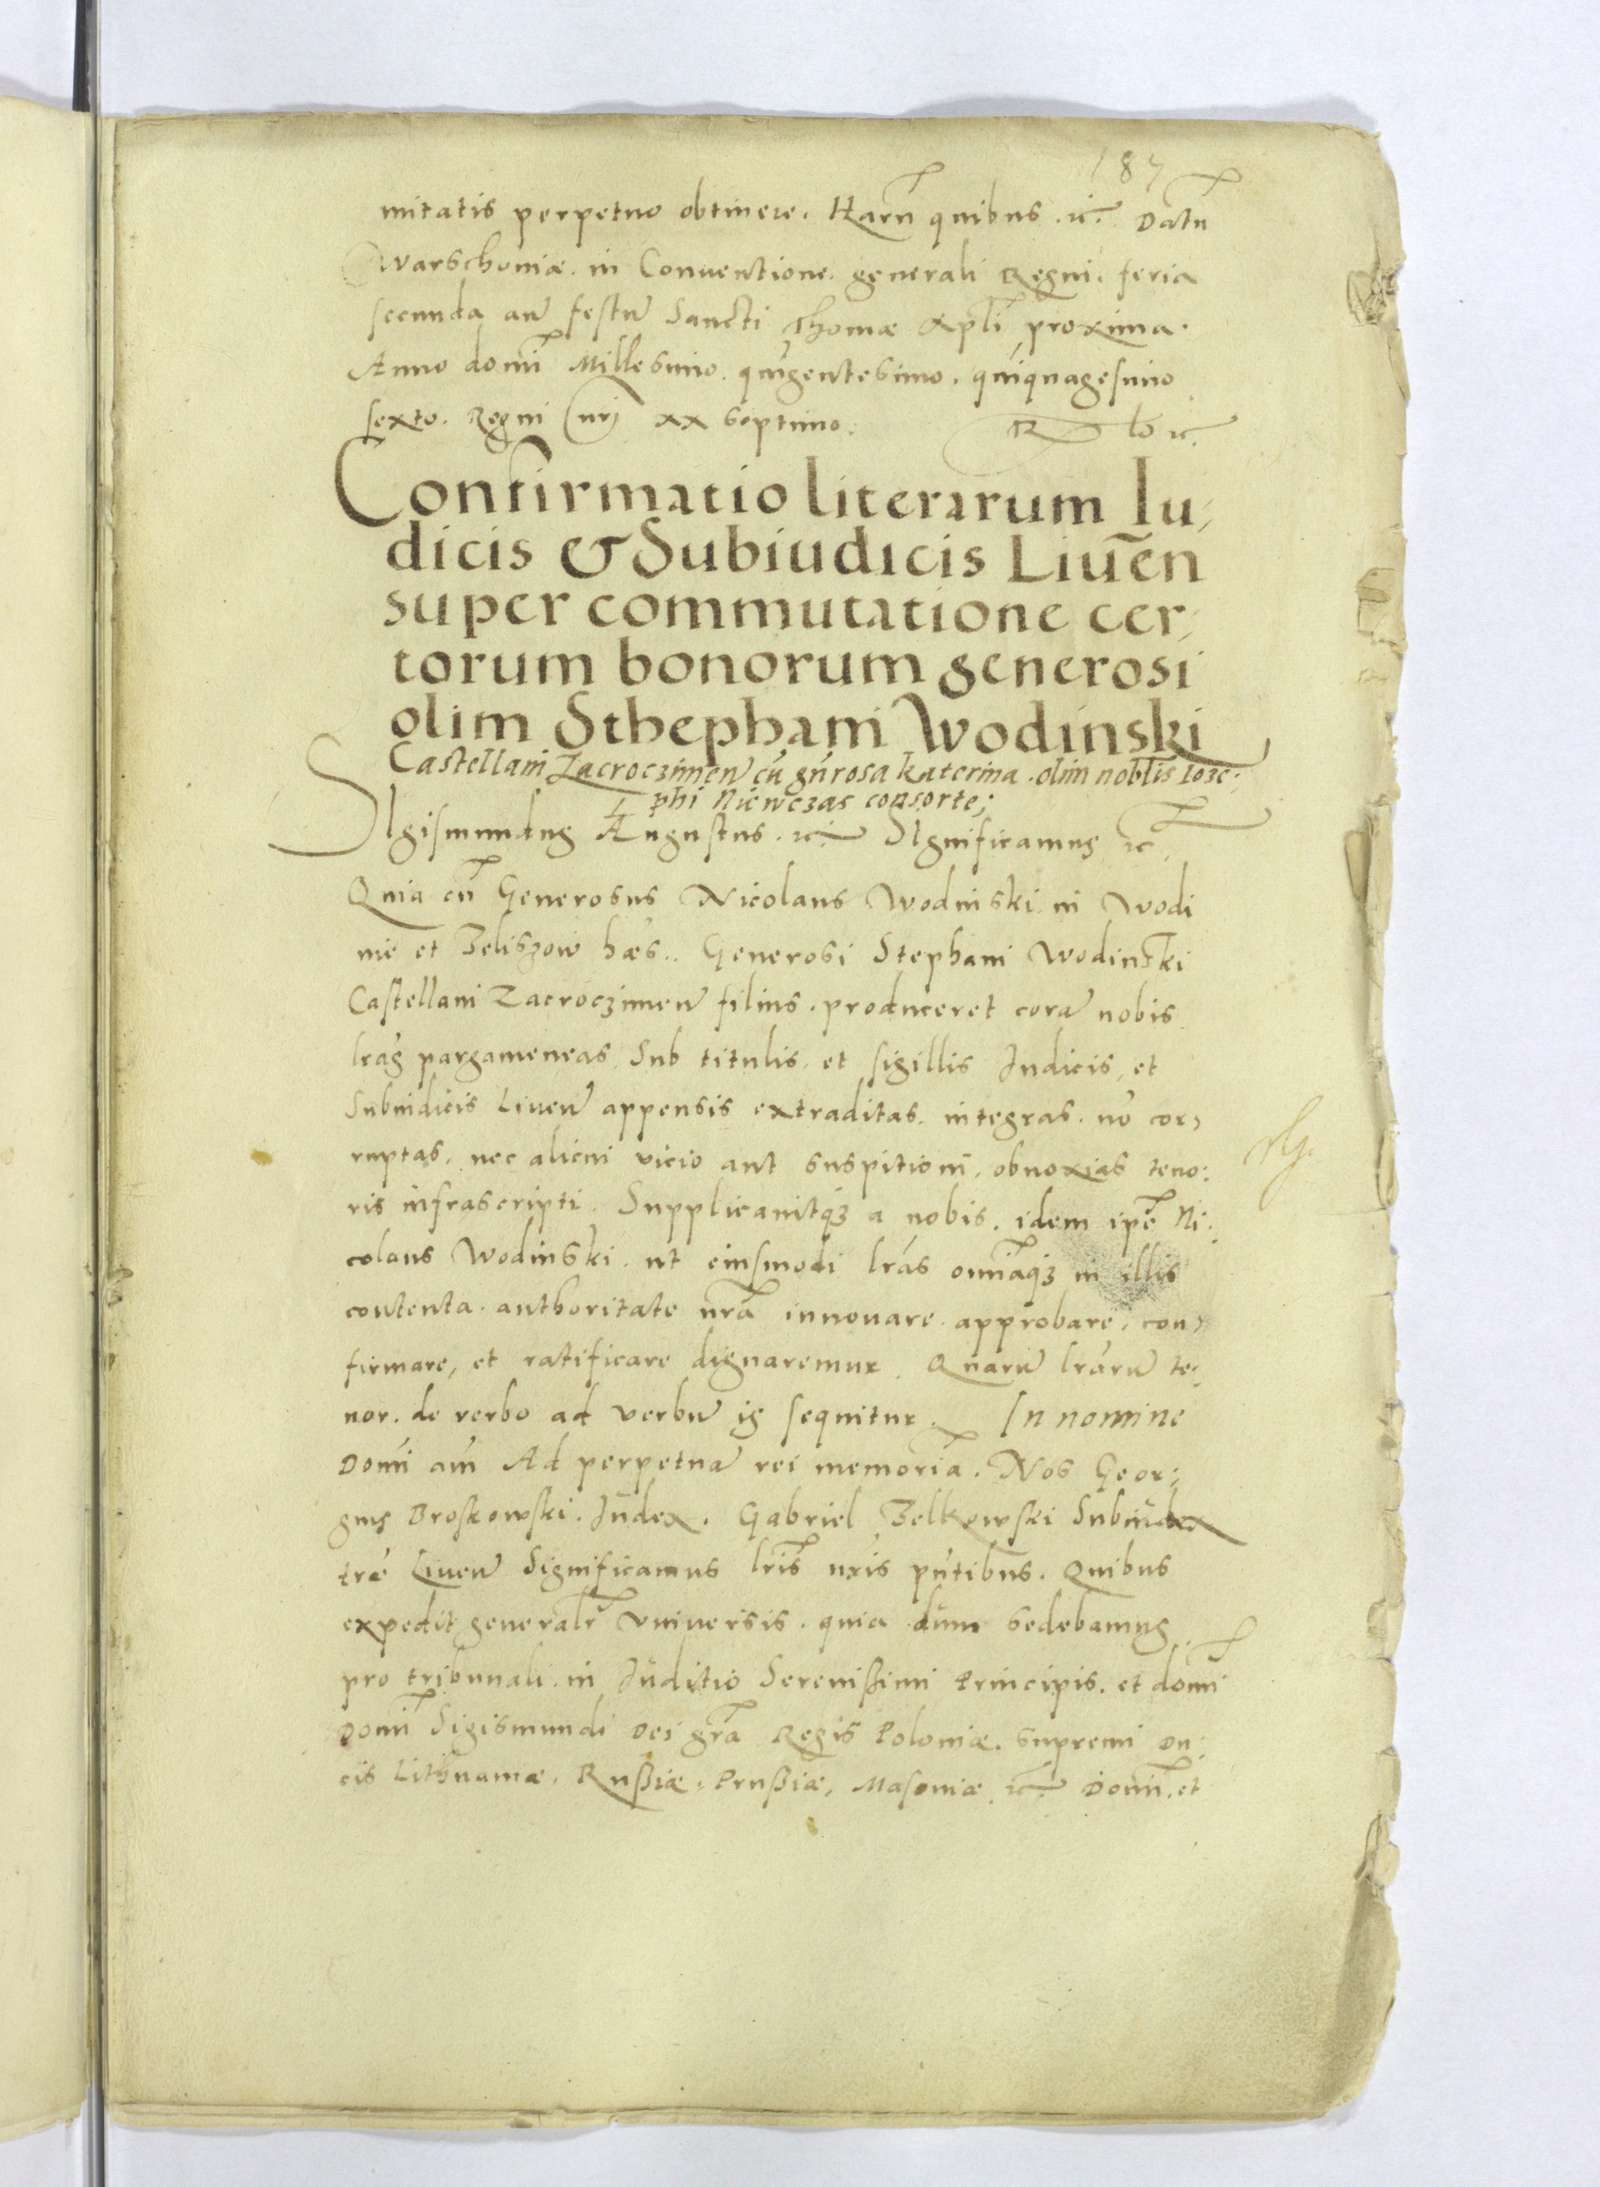 187
mitatis perpetuo obtinere. Harū quibus. ꝛc. Datū
Warschoviæ. in Conventione. generali Regni. feria
secunda an̄ festū Sancti Thomæ Apl̄i proxima.
Anno dom̄i Millesimo. qūigentesimo. qūiquagesimo
sexto. Regni nr̄i xx septimo.
Confirmatio literarum Iu,
dicis & Subiudicis Liuēn
super commutatione cer,
torum bonorum generosi
olim Sthephani Wodinski
Castellani Zacroczimen̄ cū gn̄rosa katerina. olim nobilis Ioze,
phi Niewczas consorte;
SIgismundus Augustus. ꝛc. SIgnificamus ꝛc
Quia cū Generosus Nicolaus Wodinski in Wodi
nie et Zeliszow hæs.. Generosi Stephani Wodinski
Castellani Zacroczimen̄ filius. produceret corā nobis
lrās pargameneas Sub titulis. et sigillis Iudicis, et
Subiudicis Liuen̄ appensis extraditas. integras. nō cor,
ruptas. nec alicui vicio aut suspitioni. obnoxias teno:
ris infrascripti. Supplicauitq̄ȝ a nobis. idem ip̄e Ni.
colaus Wodinski. ut eiusmodi lrās omniāqȝ in illis
contenta. authoritate nr̄a innouare. approbare. con,
firmare, et ratificare dignaremur. Quarū lrārū te,
nor. de verbo ad verbū is sequitur. In nomine
Domi am̄ Ad perpetuā rei memoriā. Nos Geor,
gius Broskowski. Iudex. Gabriel Zelkowski Subiudex
trē Liuen̄ Significamus lrīs nr̄is pn̄tibus. Quibus
expedit generalr̄ Vniuersis. quia dum sedebamus
pro tribunali. in Iuditio Serenißimi Principis. et dom̄i
Dom̄i Sigismundi Dei gr̄a Regis Poloniæ. supremi Du,
cis Lithuaniæ. Rußiæ. Prußiæ, Masoviæ ꝛc. Dom̄i. et